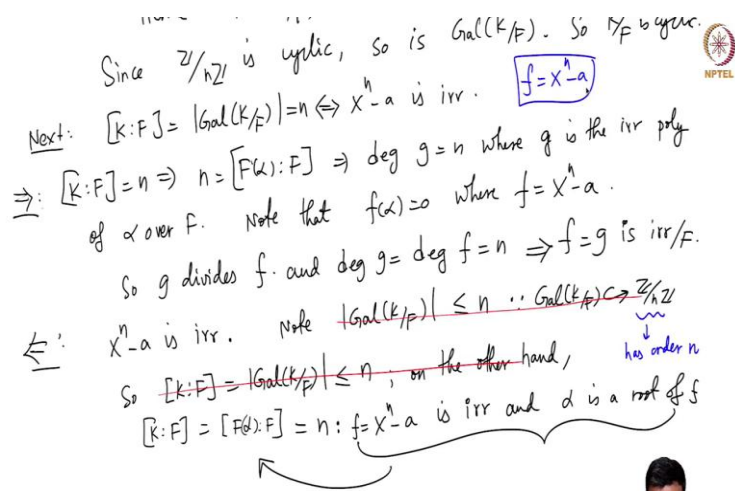 Since ℤ/nℤ is cyclic, so is Gal(K/F). So K/F is cyclic.
NPTEL
f = xⁿ-a
Next: [K:F] = |Gal(K/F)| = n ⟺ xⁿ-a is irr.
⇒: [K:F] = n ⇒ n = [F(α):F] ⇒ deg g = n where g is the irr poly
of α over F. Note that f(α)=0 where f = xⁿ-a.
So g divides f. and deg g = deg f = n ⇒ f = g is irr/F.
⇐: xⁿ-a is irr. Note |Gal(K/F)| ≤ n ∵ Gal(K/F) ↪ ℤ/nℤ
has order n
So [K:F] = |Gal(K/F)| ≤ n, on the other hand,
[K:F] = [F(α):F] = n : f = xⁿ-a is irr and α is a root of f